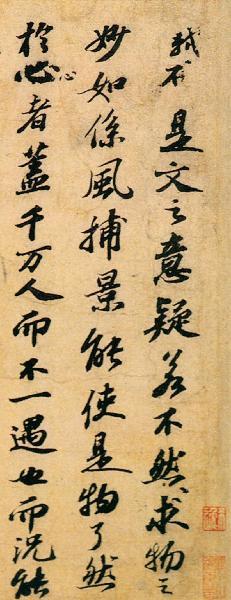 軾不是文之意疑若不然求物之
妙如係風捕景能使是物了然
於心者蓋千万人而不一遇也而況能